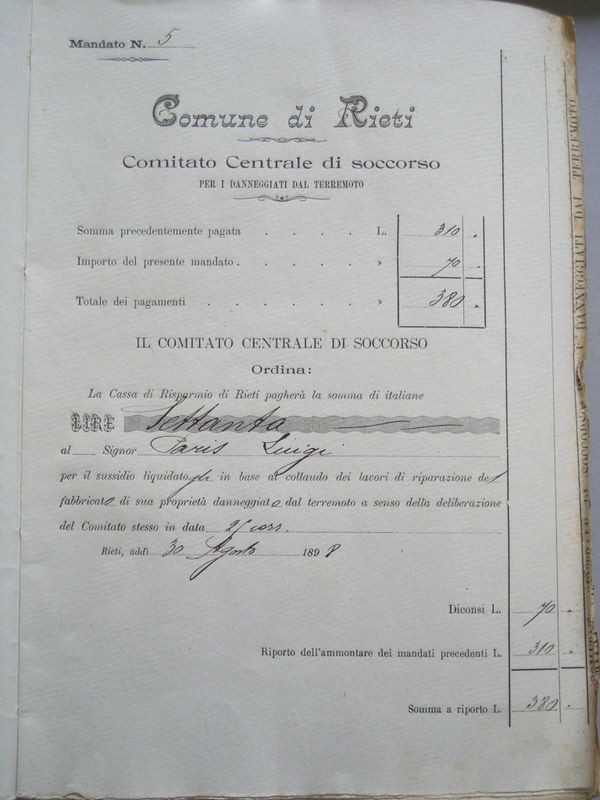 Mandato N. 5
Comune di Rieti
Comitato Centrale di soccorso
PER I DANNEGGIATI DAL TERREMOTO
Somma precedentemente pagata . . . . L. 310 .
Importo del presente mandato . . . . . » 70 .
Totale dei pagamenti . . . . . . » 380 .
IL COMITATO CENTRALE DI SOCCORSO
Ordina:
La Cassa di Risparmio di Rieti pagherà la somma di italiane
LIRE Settanta
al Signor Paris Luigi
per il sussidio liquidatogli in base al collaudo dei lavori di riparazione del
fabbricato di sua proprietà danneggiato dal terremoto a senso della deliberazione
del Comitato stesso in data corr.
Rieti, addì 30 Agosto 1898
Diconsi L. 70 .
Riporto dell'ammontare dei mandati precedenti L. 310 .
Somma a riporto L. 380 .
DANNEGGIATI DAL TERREMOTO